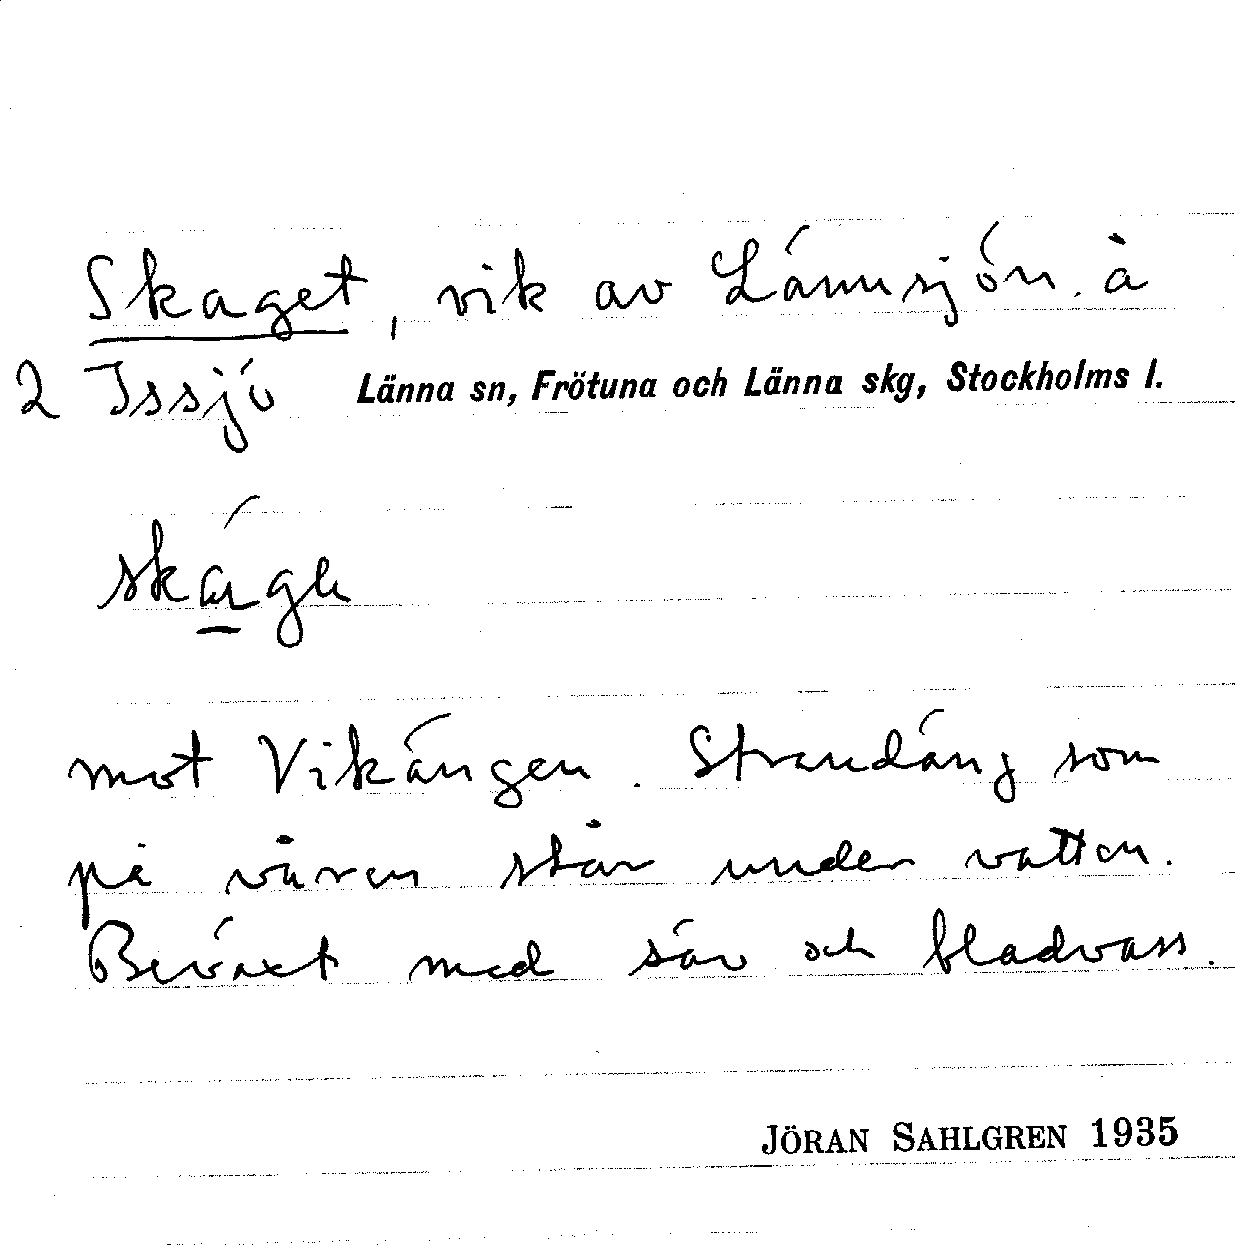 Skaget, vik av Lännsjön. å
2 Issjö Länna sn, Frötuna och Länna skg, Stockholms l.
mot Vikängen. Strandäng som
på våren står under vatten.
Beväxt med säv och bladvass.
JÖRAN SAHLGREN 1935